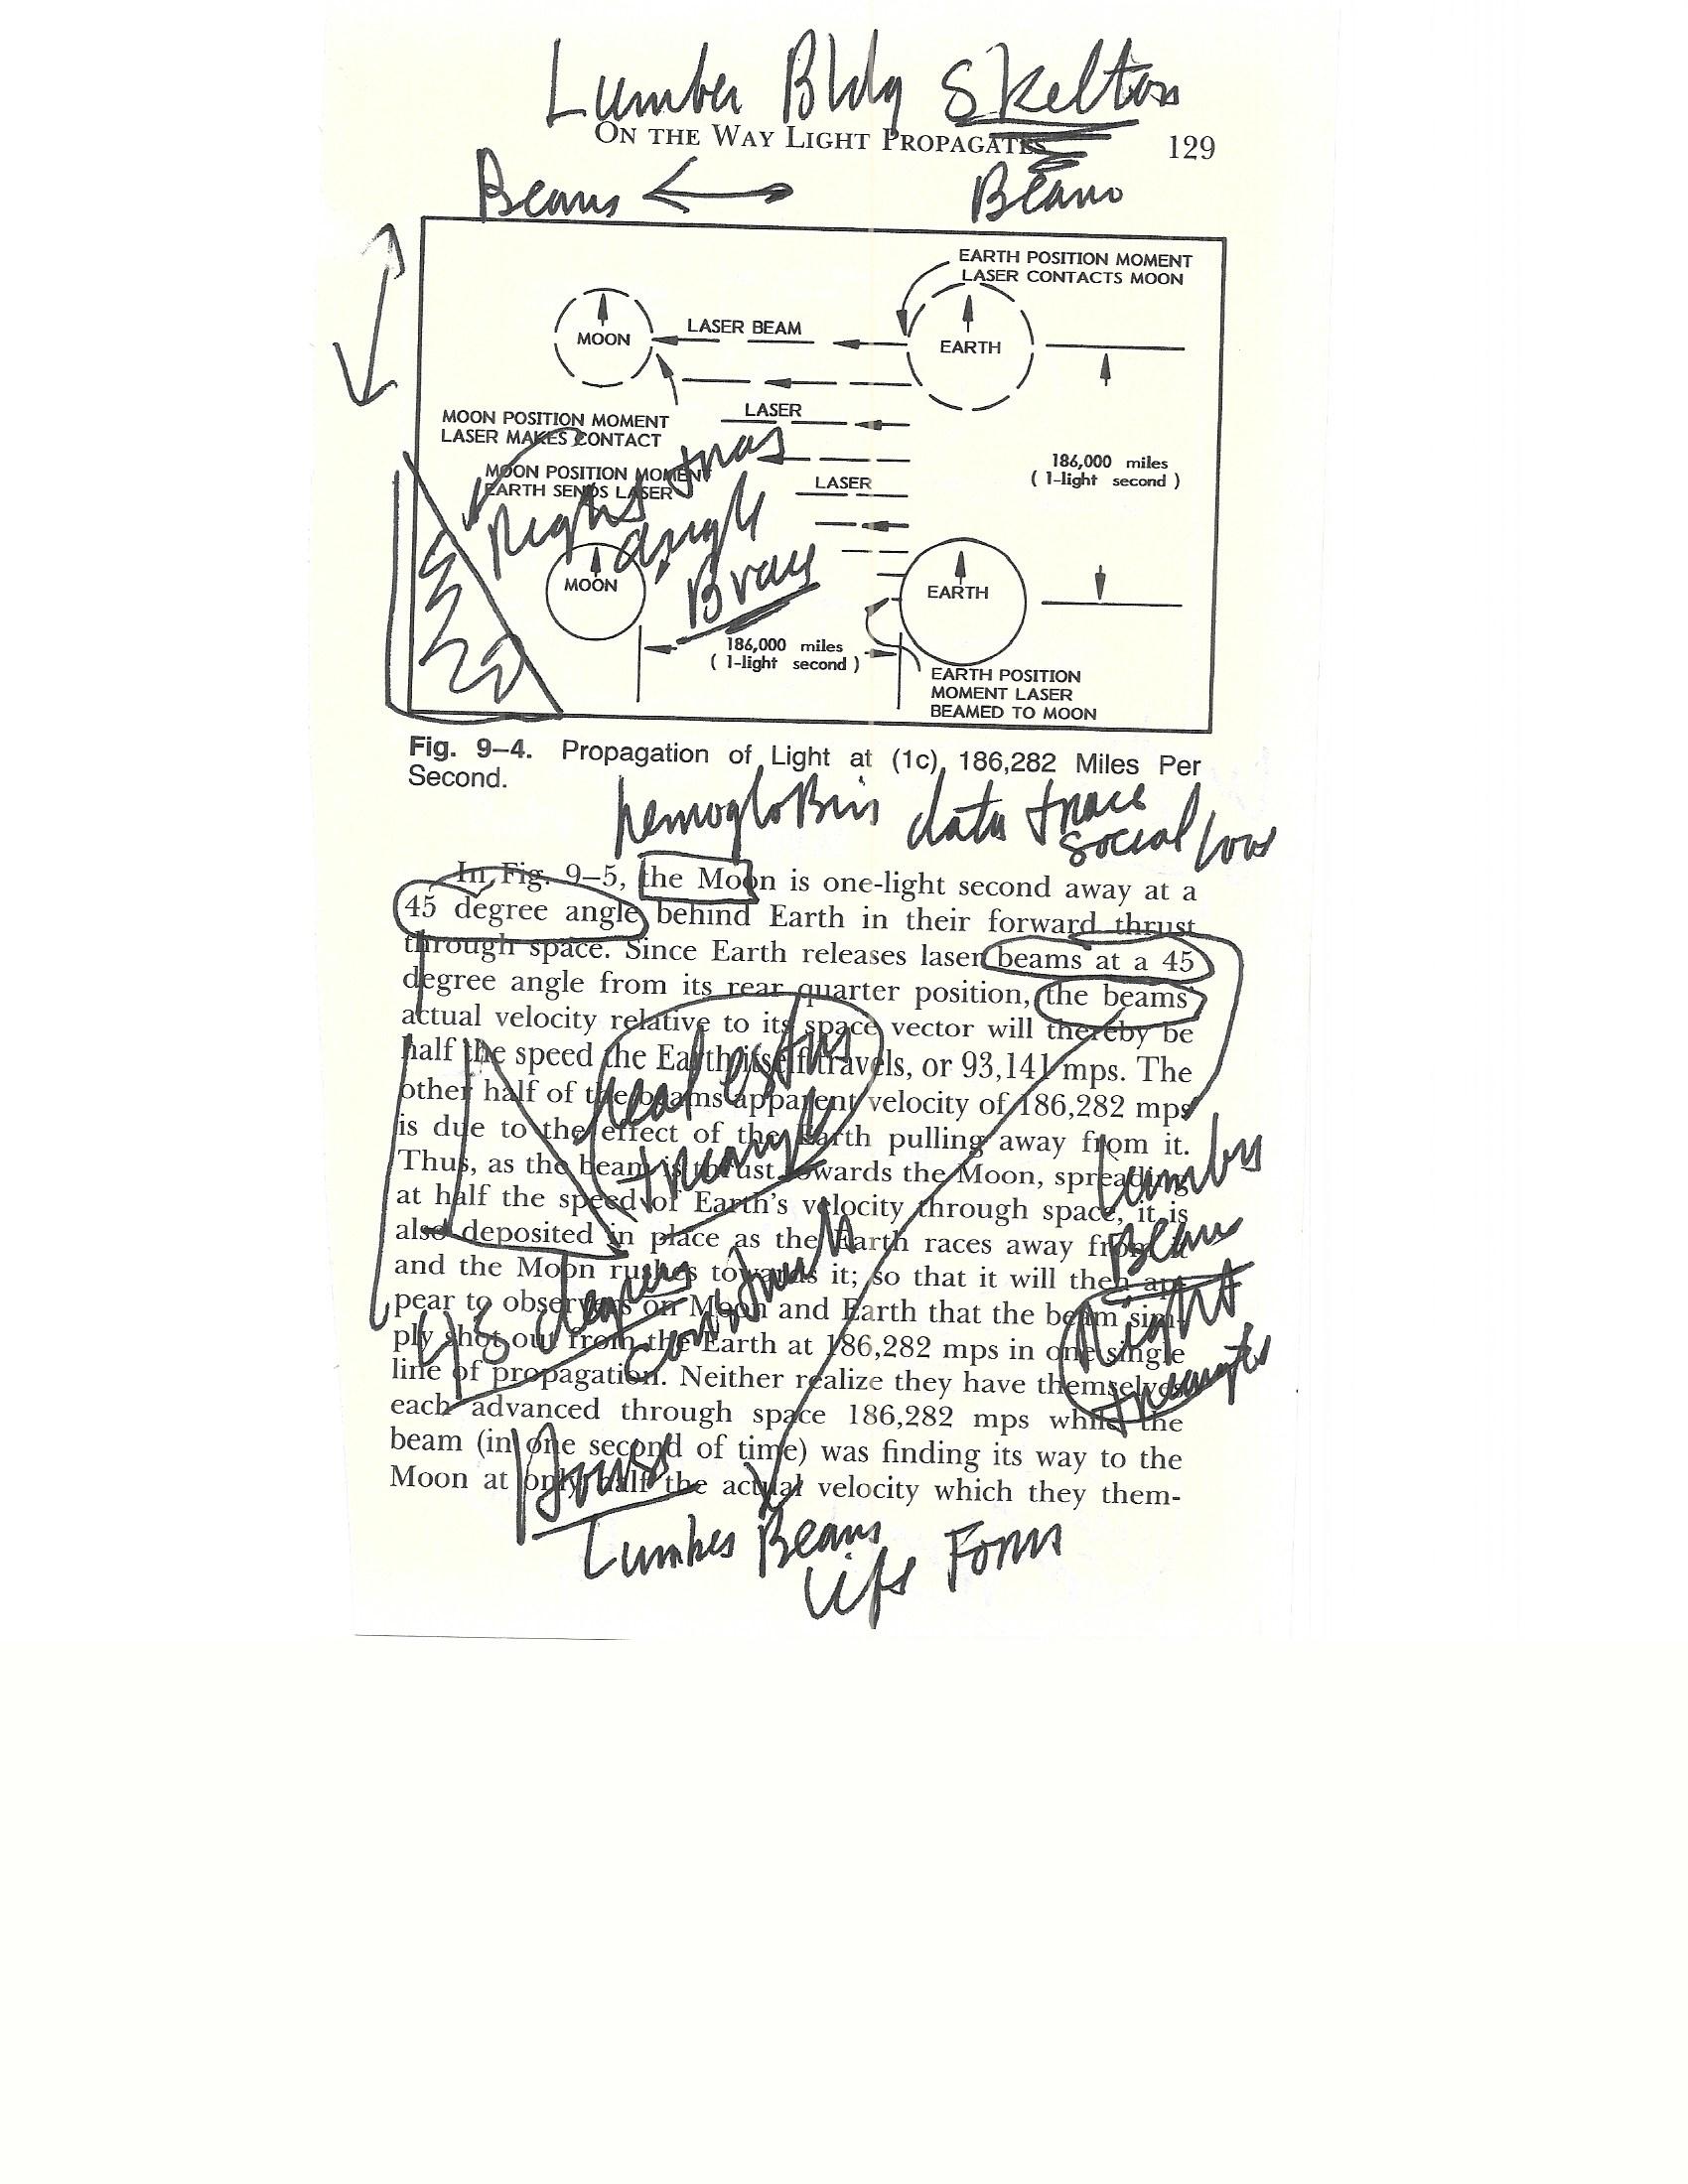 Lumber Bldg Skelton
ON THE WAY LIGHT PROPAGATES 129
Beams Beams
EARTH POSITION MOMENT
LASER CONTACTS MOON
MOON
LASER BEAM
EARTH
MOON POSITION MOMENT
LASER MAKES CONTACT
LASER
MOON POSITION MOMENT
EARTH SENDS LASER
LASER
186,000 miles
( 1-light second )
Right
angle
MOON
EARTH
186,000 miles
( 1-light second )
EARTH POSITION
MOMENT LASER
BEAMED TO MOON
Fig. 9–4. Propagation of Light at (1c), 186,282 Miles Per
Second.
hemogloBin data trace
social
In Fig. 9–5, the Moon is one-light second away at a
45 degree angle behind Earth in their forward thrust
through space. Since Earth releases laser beams at a 45
degree angle from its rear quarter position, the beams'
actual velocity relative to its space vector will thereby be
half the speed the Earth itself travels, or 93,141 mps. The
other half of the beams apparent velocity of 186,282 mps
is due to the effect of the Earth pulling away from it.
Thus, as the beam is thrust towards the Moon, spreading
at half the speed of Earth's velocity through space, it is
also deposited in place as the Earth races away from it
and the Moon rushes towards it; so that it will then ap-
pear to observers on Moon and Earth that the beam sim-
ply shot out from the Earth at 186,282 mps in one single
line of propagation. Neither realize they have themselves
each advanced through space 186,282 mps while the
beam (in one second of time) was finding its way to the
Moon at only half the actual velocity which they them-
real
Lumber
Beam
Right
45 degrees
Lumber Beams
life Form